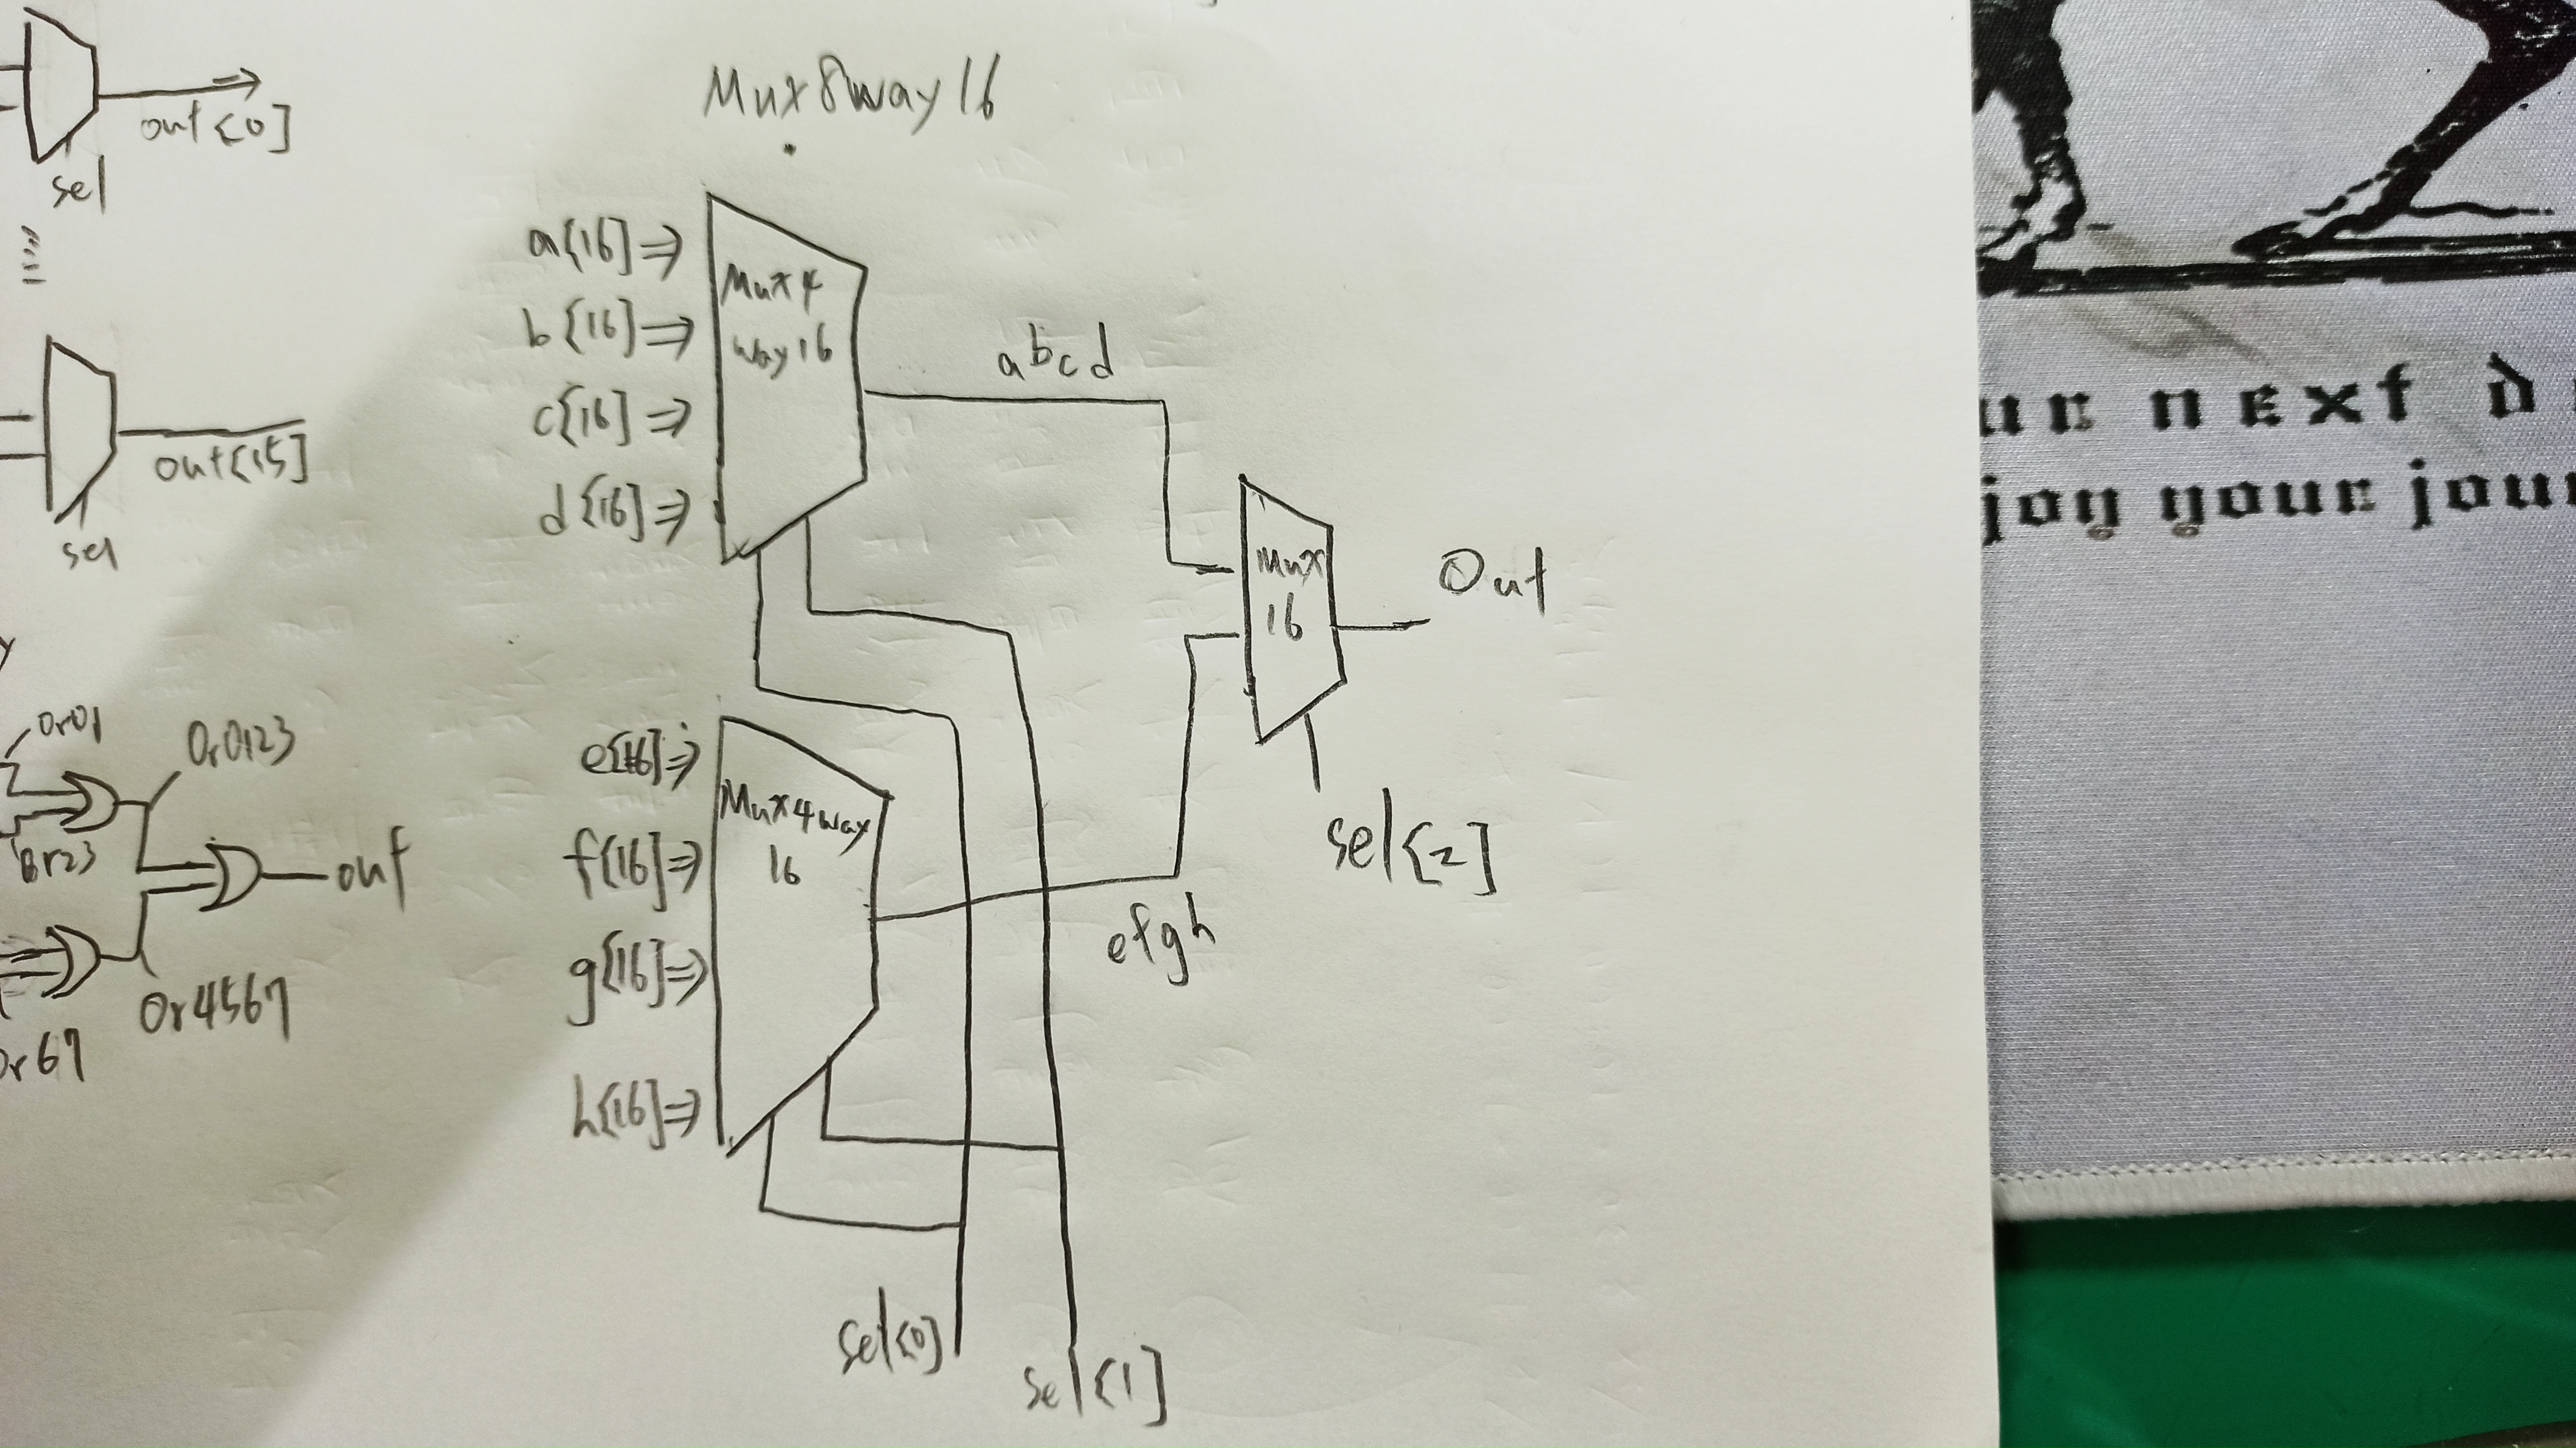 out[0]
sel
out[15]
sel
Or01
Or0123
Or23
out
Or4567
Or67
Mux8way16
a[16]⇒
b[16]⇒
c[16]⇒
d[16]⇒
Mux4
way16
abcd
e[16]⇒
f[16]⇒
g[16]⇒
h[16]⇒
Mux4way
16
efgh
Mux
16
Out
sel[2]
sel[0]
sel[1]
ur next d
joy your jour